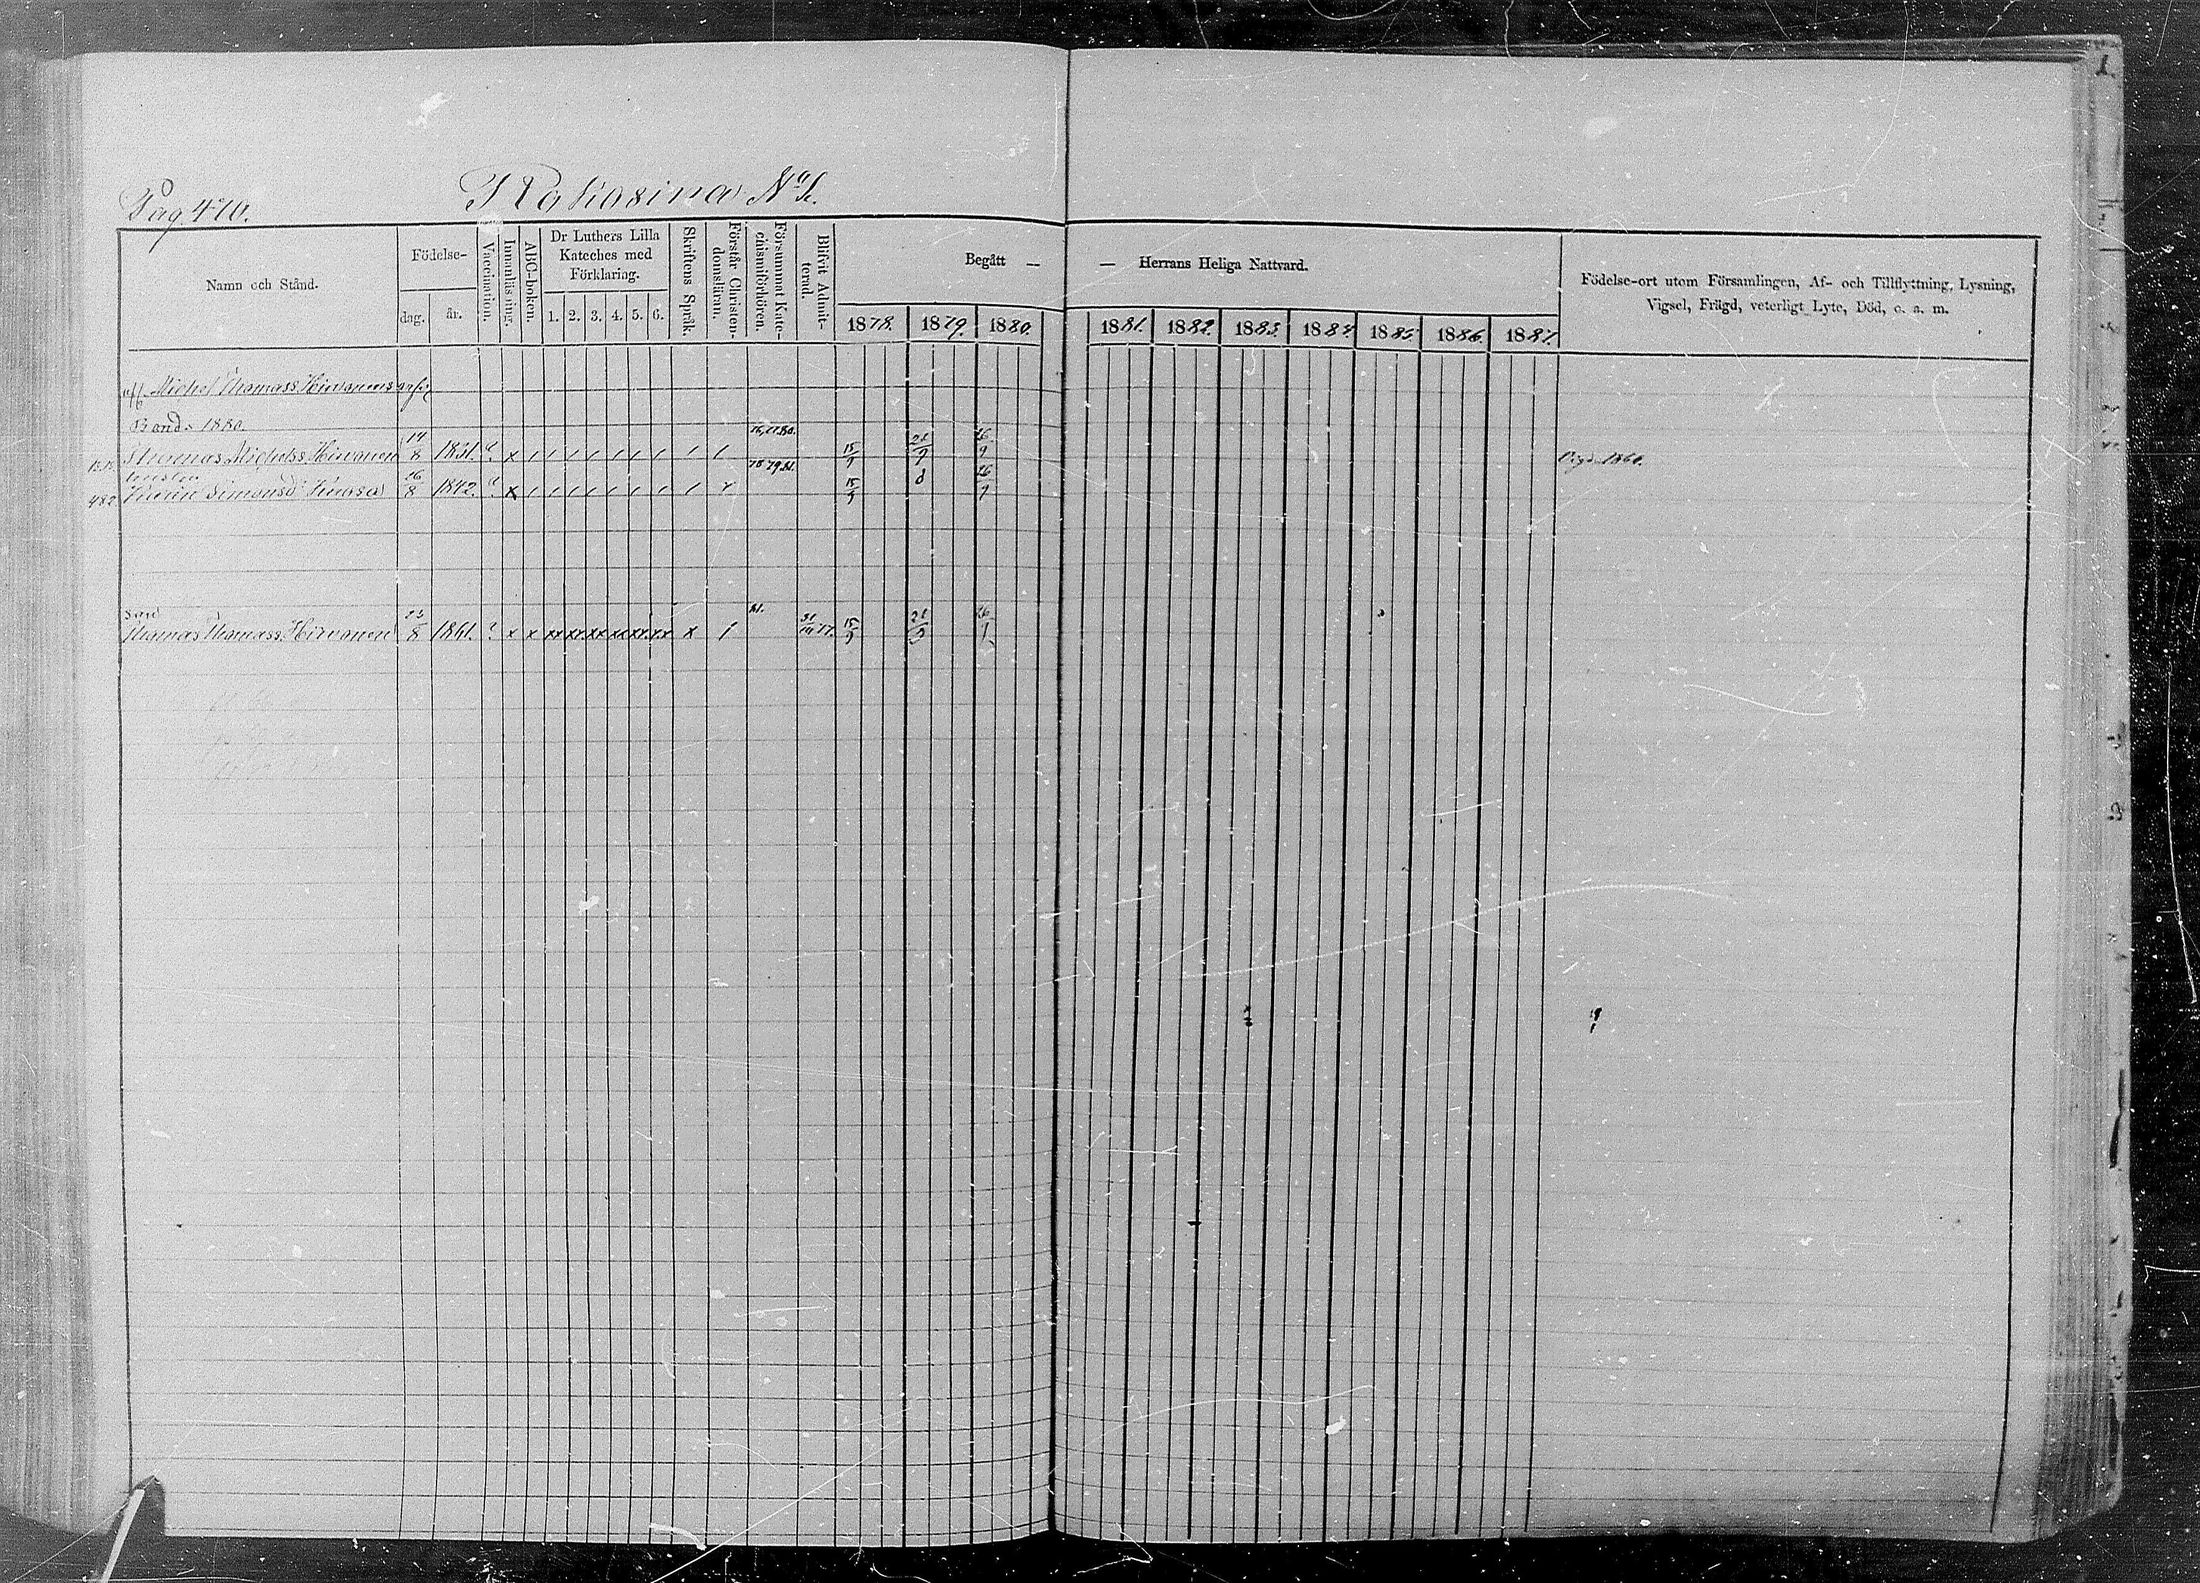 Pag. 470.
Rokosina No 1.
Namn och Stånd.
Födelse-
dag.
år.
Vaccination.
Innanläsning.
ABC-boken.
Dr Luthers Lilla
Kateches med
Förklaring.
1. 2. 3. 4. 5. 6.
Skriftens Språk.
Förstår Christen-
domsläran.
Försummat Kate-
chismiförhören.
Blifvit Admit-
terad.
Begått —
— Herrans Heliga Nattvard.
1878. 1879. 1880.
1881. 1882. 1883. 1884. 1885. 1886. 1887.
Födelse-ort utom Församlingen, Af- och Tillflyttning, Lysning,
Vigsel, Frägd, veterligt Lyte, Död, o. a. m.
Michel Thomass. Hirvonens
Bond. 1880.
Thomas Michelss. Hirvonen 14/8 1831. x 15/9 21/9 26/9
hustru
482 Simonsd. 26/8 1842. x 78 79 81. 15/9 26/9
Vigd 1860.
Son
Thomas Thomass. Hirvonen 23/8 1861. x x xx xx xx xx xx xx x 81. 15/9 21/9 26/9